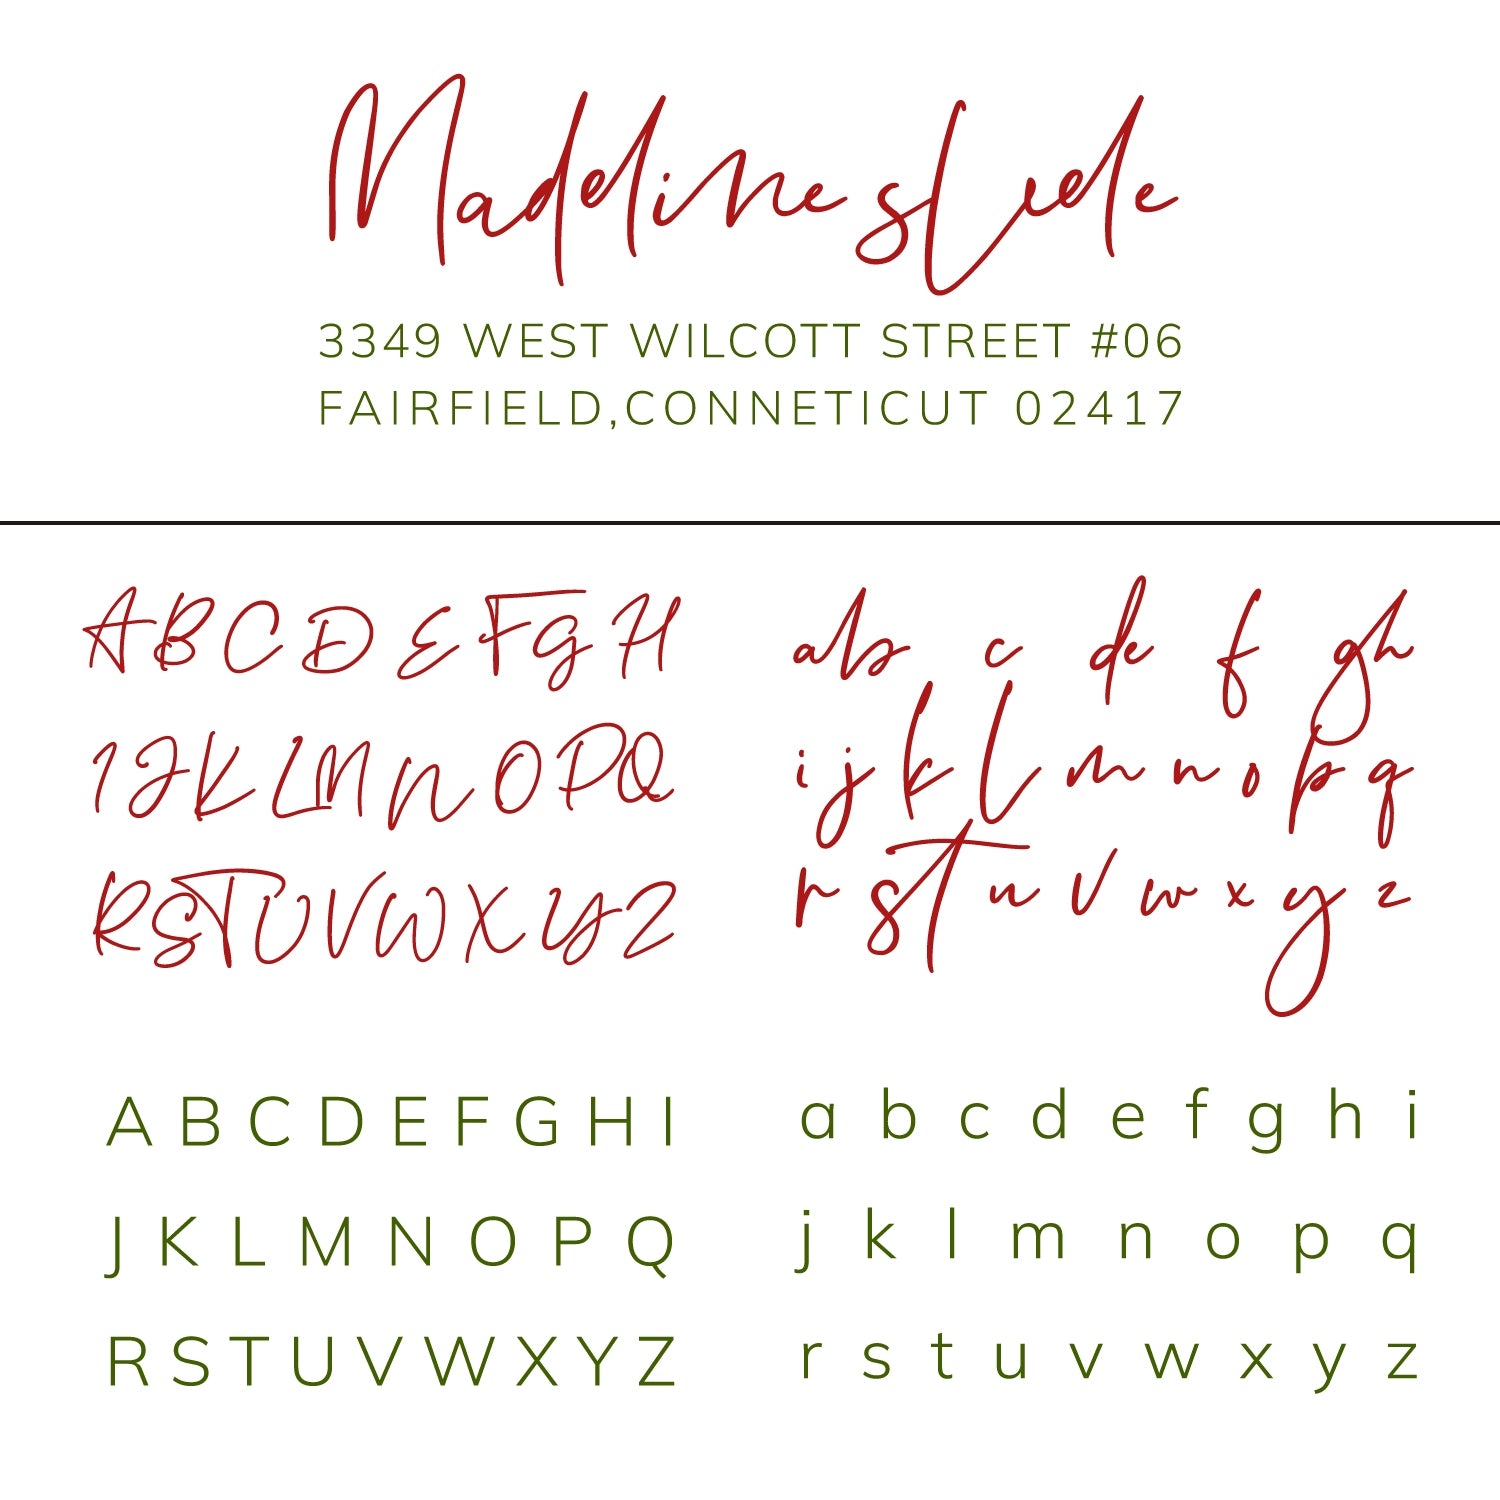 Madeline
3349 WEST WILCOTT STREET #06
FAIRFIELD,CONNETICUT 02417
A B C D E F G H
I J K L M N O P Q
R S T U V W X Y Z
a b c d e f g h
i j k l m n o p q
r s t u v w x y z
A B C D E F G H I
J K L M N O P Q
R S T U V W X Y Z
a b c d e f g h i
j k l m n o p q
r s t u v w x y z